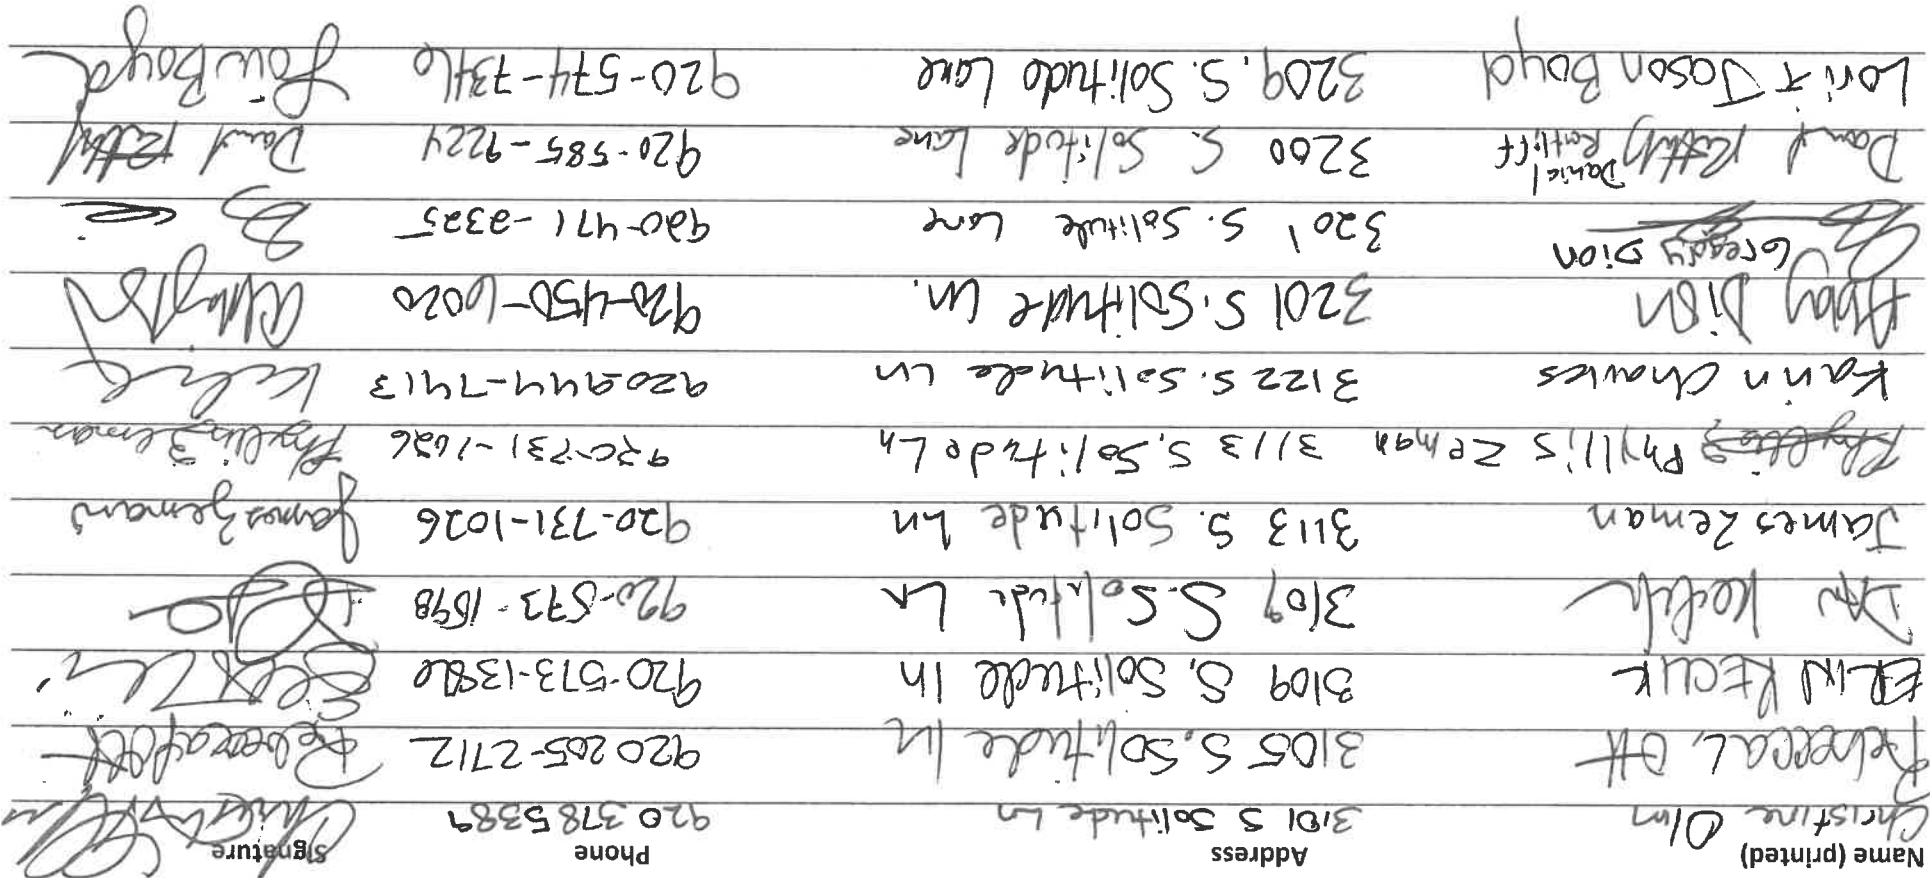 Name (printed) Address Phone Signature
Christine Olm 3101 S Solitude Ln 920 378 5389
Rebecca L Ott 3105 S. Solitude ln 920 205-2712 Rebecca Ott
ERIN KECLIK 3109 S. Solitude ln 920-573-1386
DAN Keclik 3109 S. Solitude Ln 920-573-1898
James Zeman 3113 S. Solitude Ln 920-731-1026 James Zeman
Phyllis Zeman 3113 S. Solitude Ln 920-731-1026 Phyllis Zeman
Karin Chawes 3122 S. Solitude Ln 920 944-7413
Abby Dion 3201 S. Solitude Ln. 920-450-6020
Gregory Dion 3201 S. Solitude Lane 920-471-2325
Daniel Ratliff 3200 S. Solitude Lane 920-585-9224
Lori & Jason Boyd 3209 S. Solitude Lane 920-574-7346 Lori Boyd